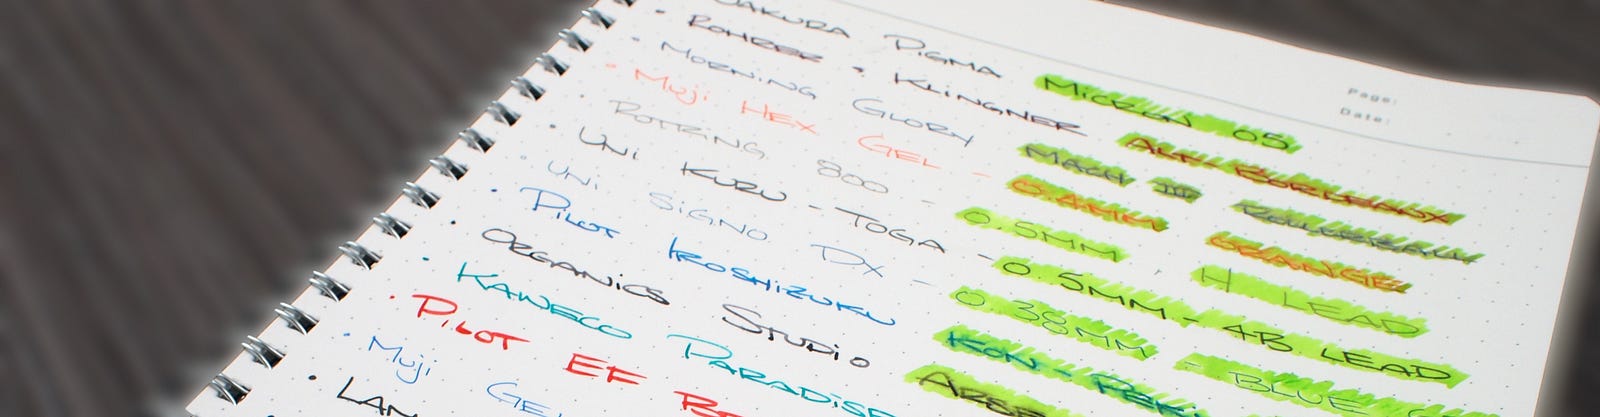 Page:
Date:
SAKURA PIGMA MICRON 05
• ROHRER + KLINGNER ALT-BORDEAUX
• MORNING GLORY MACH III ROLLERBALL
• MUJI HEX GEL - 0.4MM ORANGE
• ROTRING 800 - 0.5MM, H LEAD
• UNI KURU-TOGA - 0.5MM - 4B LEAD
• UNI SIGNO DX - 0.38MM - BLUE
• PILOT IROSHIZUKU KON-PEKI
• ORGANICS STUDIO
• KAWECO PARADISE
• PILOT EF
• MUJI GEL